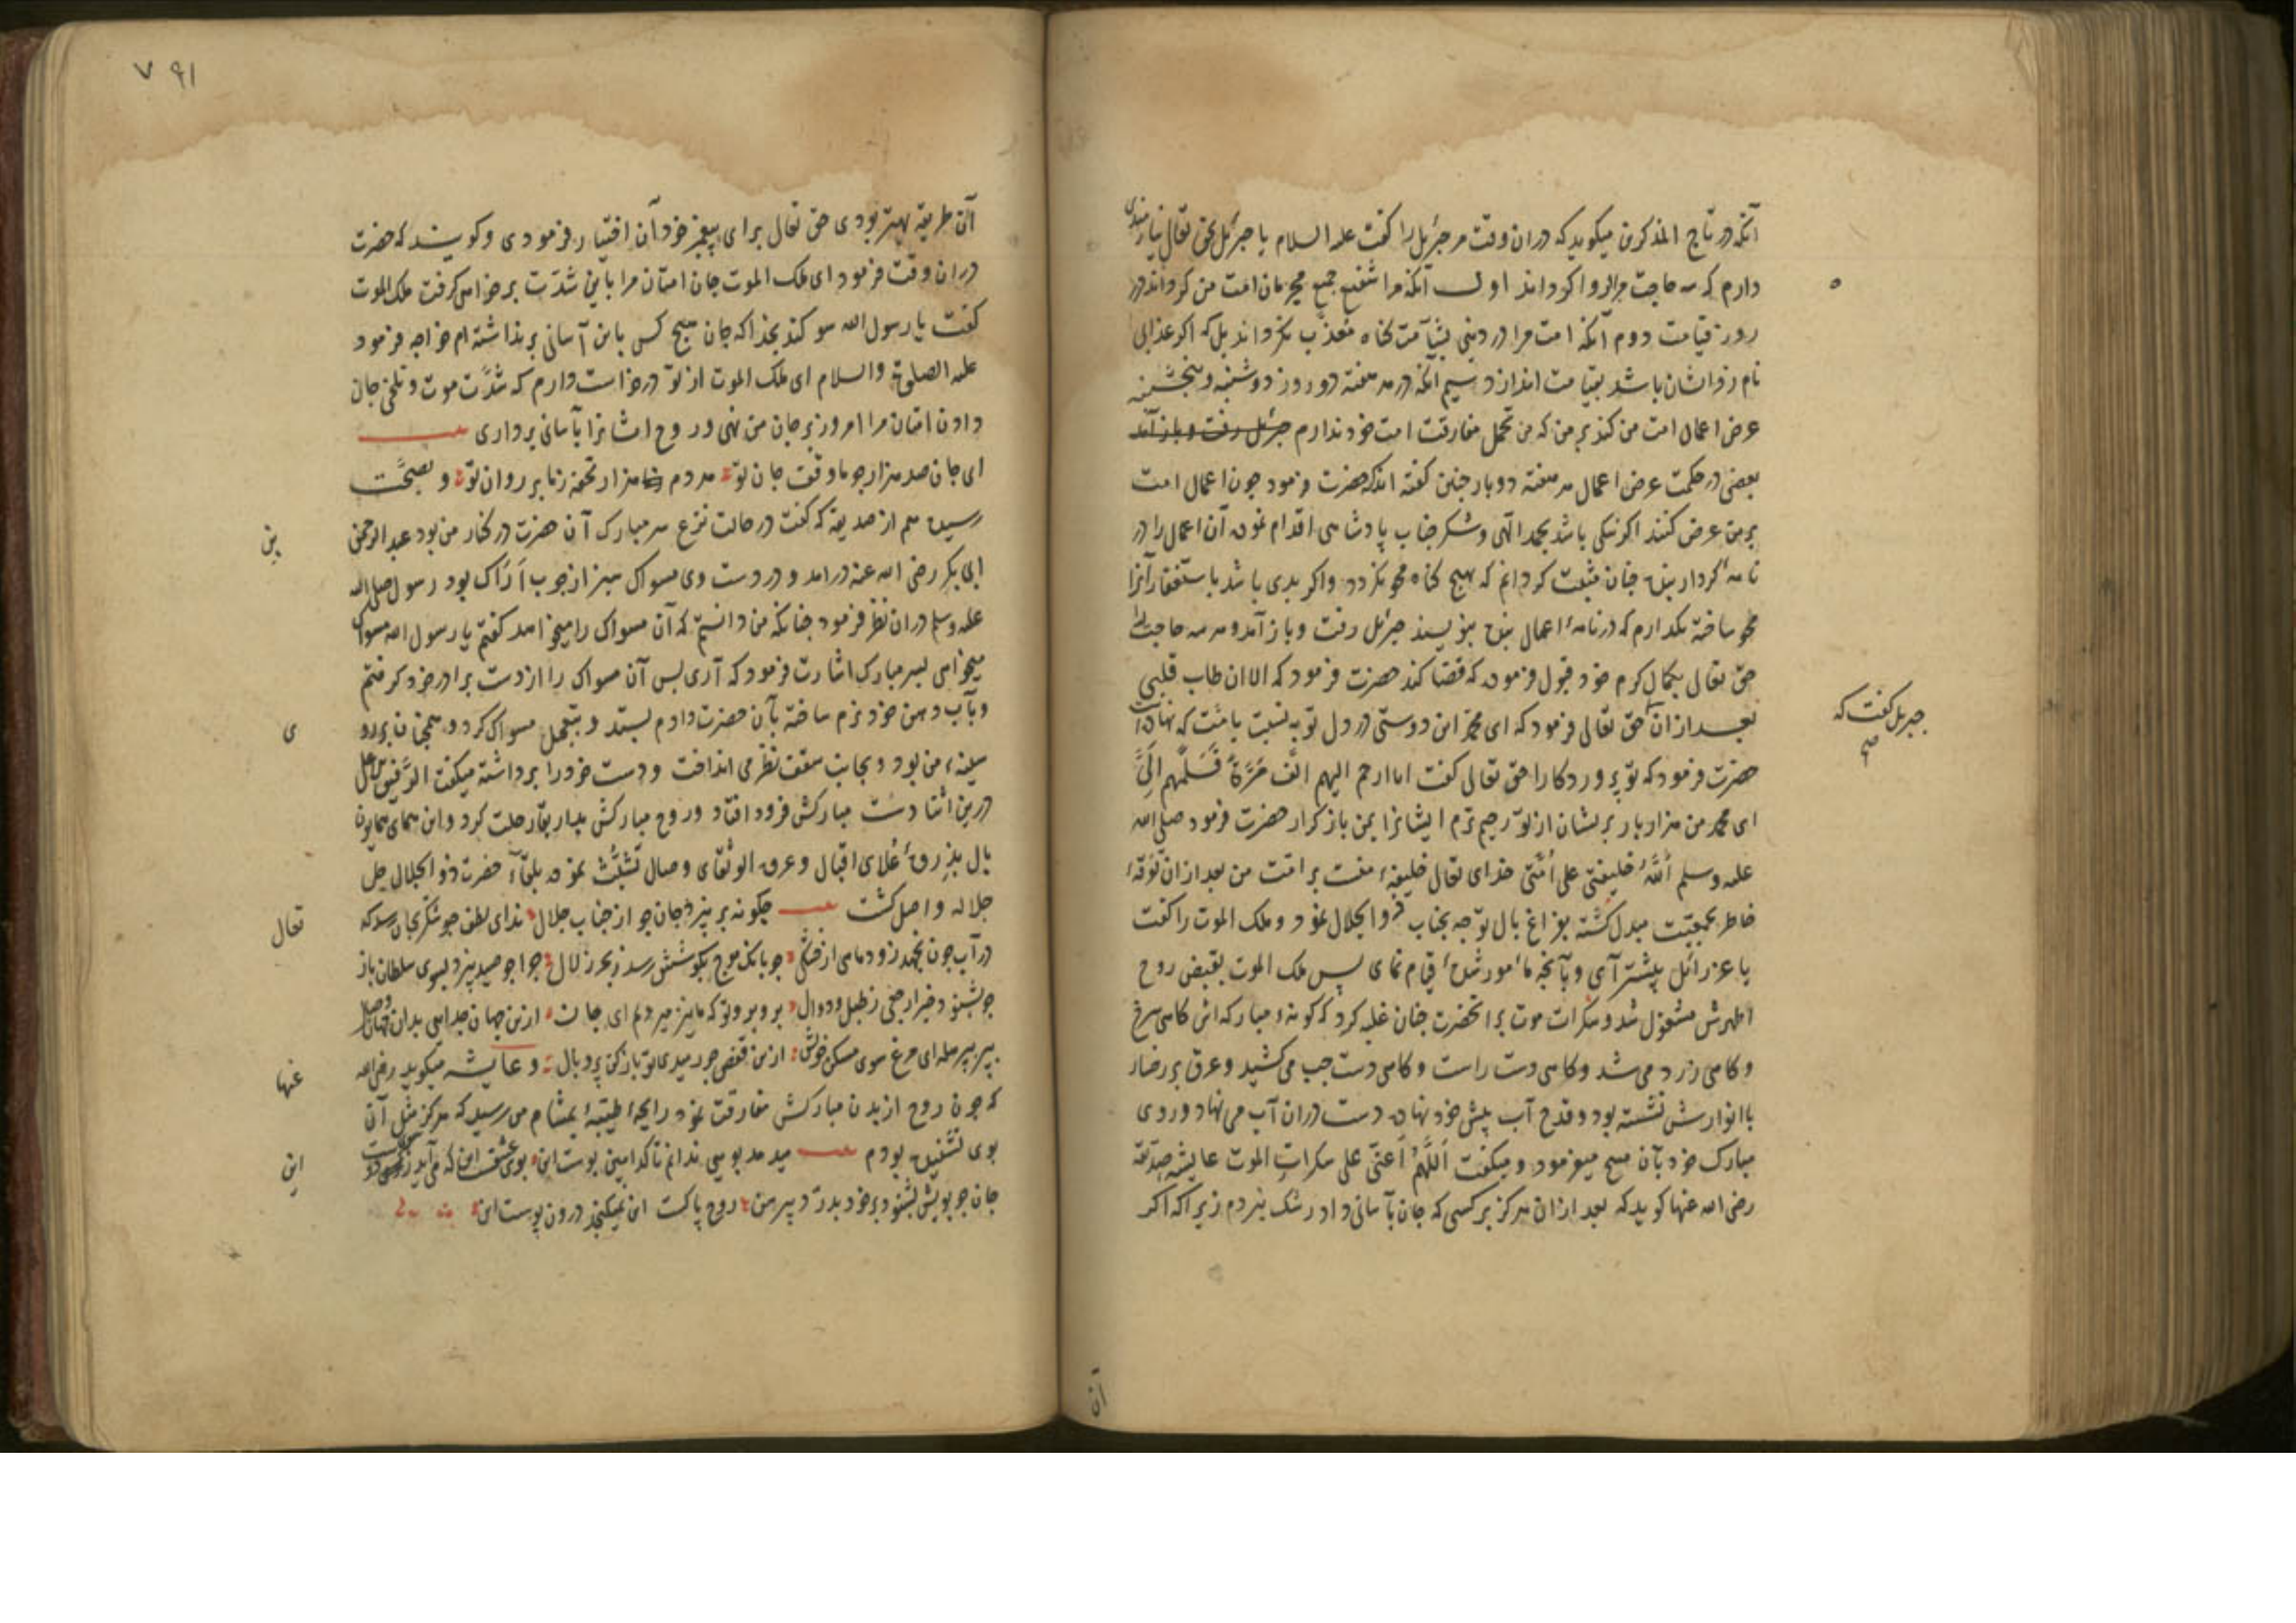 آنکه در تاج المذکرین میکوید که دران وقت مر جبرئیل را کفت علیه السلام یا جبرئیل بحق تعالی نیازمندی
دارم که سه حاجت مرا روا کرداند اول آنکه مرا شفیع جمیع مجرمان امت من کرداند در
روز قیامت دوم آنکه امت مرا در دنیی بشآمت کناه معذّب نکرداند بل که اکر عذابی
نام زد ایشان باشد بقیامت اندازد سیم آنکه در هر هفته دو روز دوشنبه و پنجشنبه
عرض اعمال امت من کند بر من که من تحمل مفارقت امت خود ندارم جبرئیل رفت و باز آمد
بعضی در حکمت عرض اعمال هر هفته دو بار چنین کفته اند که حضرت فرمود چون اعمال امت
بر من عرض کنند اکر نیکی باشد بحمد الهی و شکر جناب پادشاهی اقدام نموده آن اعمال را در
نامهٔ کردار بنده چنان مثبت کردانم که هیچ کناه محو نکردد و اکر بدی باشد باستغفار آنرا
محو ساخته نکذارم که در نامهٔ اعمال بنده بنویسند جبرئیل رفت و باز آمد و هر سه حاجت را
حق تعالی بکمال کرم خود قبول فرموده که قضا کند حضرت فرمود که الان طاب قلبی
جبریل کفت که
بعد ازان حق تعالی فرمود که ای محمد این دوستی در دل تو به نسبت بامت که نهاده است
حضرت فرمود که تو پروردکارا حق تعالی کفت انا ارحم الیهم الف مَرَّةً فَسَلِّمْهم اِلَیَّ
ای محمد من هزار بار بریشان از تو رحیم ترم ایشانرا بمن باز کذار حضرت فرمود صلی الله
علیه وسلم اَللّٰهُ خلیفتی علی اُمَّتی خدای تعالی خلیفهٔ منست بر امت من بعد ازان تفرقهٔ
خاطر بجمعیّت مبدل کشته بفراغ بال توجه بجناب ذو الجلال نمود و ملک الموت را کفت
یا عزرائیل پیشتر آی و بآنچه مأمور شدهٔ قیام نمای پس ملک الموت بقبض روح
اطهرش مشغول شد و سکرات موت بر انحضرت چنان غلبه کرد که کونهٔ مبارکه اش کاهی سرخ
و کاهی زرد می شد و کاهی دست راست و کاهی دست چپ می کشید و عرق بر رخسار
با انوارش نشسته بود و قدح آب پیش خود نهاده دست دران آب می نهاد و روی
مبارک خود بآن مسح میفرمود و میکفت اَللّٰهُمَّ اَعنّی علی سکرات الموت عایشه صدیقه
رضی الله عنها کوید که بعد ازان هرکز بر کسی که جان بآسانی داد رشک نبردم زیرا که اکر
آن
۷ ۹۱
آن طریقه بهتر بودی حق تعالی برای پیغمبر خود آن اختیار فرمودی و کویند که حضرت
دران وقت فرمود ای ملک الموت جان امتان مرا باین شدّت بر خواهی کرفت ملک الموت
کفت یا رسول الله سوکند بخدا که جان هیچ کس باین آسانی بر نداشته ام خواجه فرمود
علیه الصلوة والسلام ای ملک الموت از تو درخواست دارم که شدّت موت و تلخی جان
دادن امتان مرا امروز بر جان من نهی و روح ایشانرا بآسانی برداری
ای جان صد هزار چو ما وقت جان تو هر دم هزار تحفه ز ما بر روان تو و بصحّت
رسیده هم از صدیقه که کفت در حالت نزع سر مبارک آن حضرت در کنار من بود عبد الرحمن بن
ابی بکر رضی الله عنه درامد و در دست وی مسواک سبز از چوب اَرَاک بود رسول صلی الله
علیه وسلم دران نظر فرمود چنانکه من دانستم که آن مسواک را میخواهد کفتم یا رسول الله مسواک
میخواهی بسر مبارک اشارت فرمود که آری پس آن مسواک را از دست برادر خود کرفتم
و بآب دهن خود نرم ساخته بآن حضرت دادم بستد و بتعجیل مسواک کرد و همچنان بر روی
سینهٔ من بود و بجانب سقف نظر می انداخت و دست خود را برداشته میکفت الرَّفیق الاعلی
درین اثنا دست مبارکش فرود افتاد و روح مبارکش بدار بقا رحلت کرد و این همای همایون
بال بذروهٔ اعلای اقبال و عروه الوثقای وصال تشبّث نموده بلقآء حضرت ذو الجلال جل
جلاله واصل کشت چکونه بر نپرد جان چو از جناب جلال ندای لطف چو شکر بجان رسد که تعال
در آب چون نجهد زود ماهی از خشکی چو بانک موج بکوشش رسد ز بحر زلال چرا چو صید نپرد بسوی سلطان باز
چو بشنود خبر ارجعی ز طبل و دوال برو برو تو که ما نیز میرویم ای جان ازین جهان جدایی بدان جهان وصال
بپر بپر هله ای مرغ سوی مسکن خویش ازین قفص چو رهیدی تو باز کن پر و بال و عایشه میکوید رضی الله عنها
که چون روح از بدن مبارکش مفارقت نمود رایحهٔ طیّبهٔ بمشام من رسید که هرکز مثل آن
بوی نشنیده بودم میدمد بویی ندانم تا کدامین بوست این بوی عشق است این که می آید
جان چو بویش بشنود بر خود بدرّد پیرهن روح پاکست این نمیکنجد درون پوست این